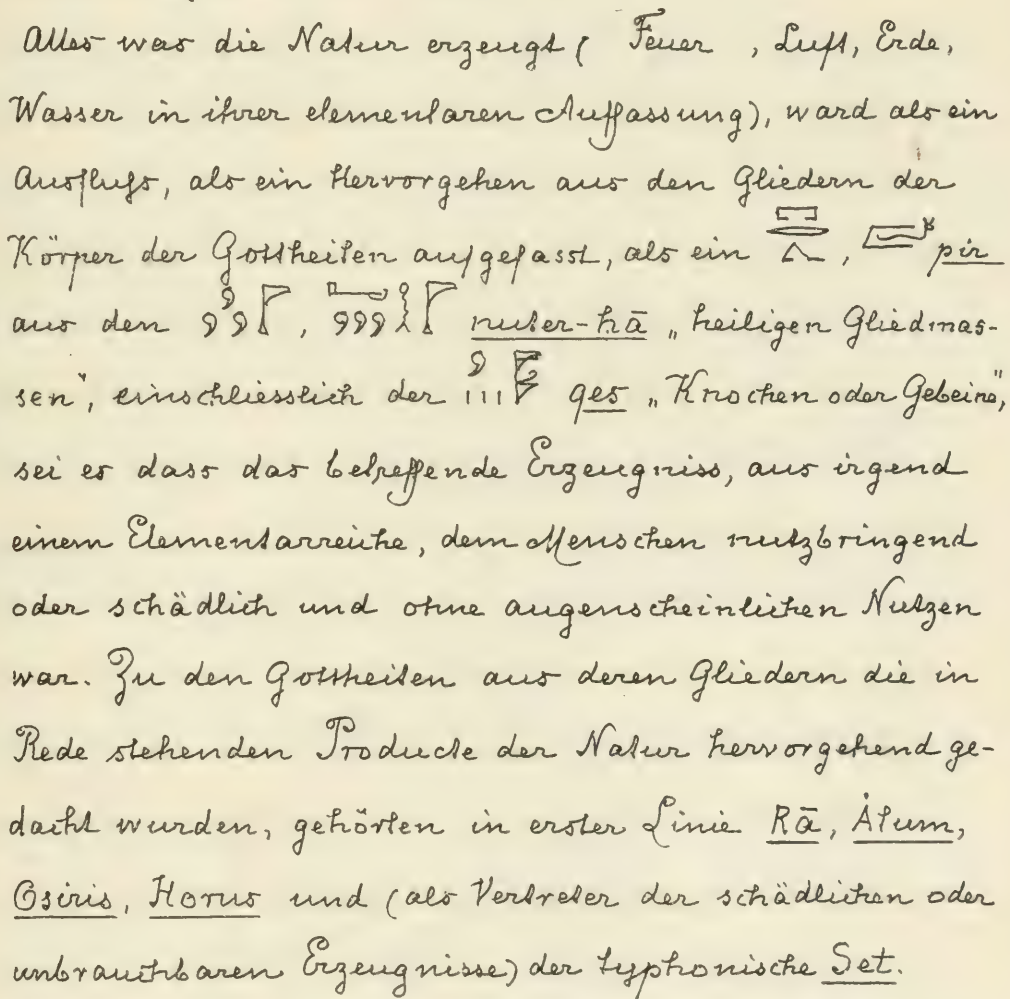 Alles was die Natur erzeugt ( Feuer , Luft, Erde,
Wasser in ihrer elementaren Auffassung), ward als ein
Ausfluss, als ein Hervorgehen aus den Gliedern der
Körper der Gottheiten aufgefasst, als ein 𓉐𓂋𓂻, pir
aus den nuter-hā „heiligen Gliedmas-
sen", einschliesslich der qes „Knochen oder Gebeine",
sei es dass das betreffende Erzeugniss, aus irgend
einem Elementarreiche, dem Menschen nutzbringend
oder schädlich und ohne augenscheinlichen Nutzen
war. Zu den Gottheiten aus deren Gliedern die in
Rede stehenden Producte der Natur hervorgehend ge-
dacht wurden, gehörten in erster Linie Rā, Àtum,
Osiris, Horus und (als Vertreter der schädlichen oder
unbrauchbaren Erzeugnisse) der typhonische Set.